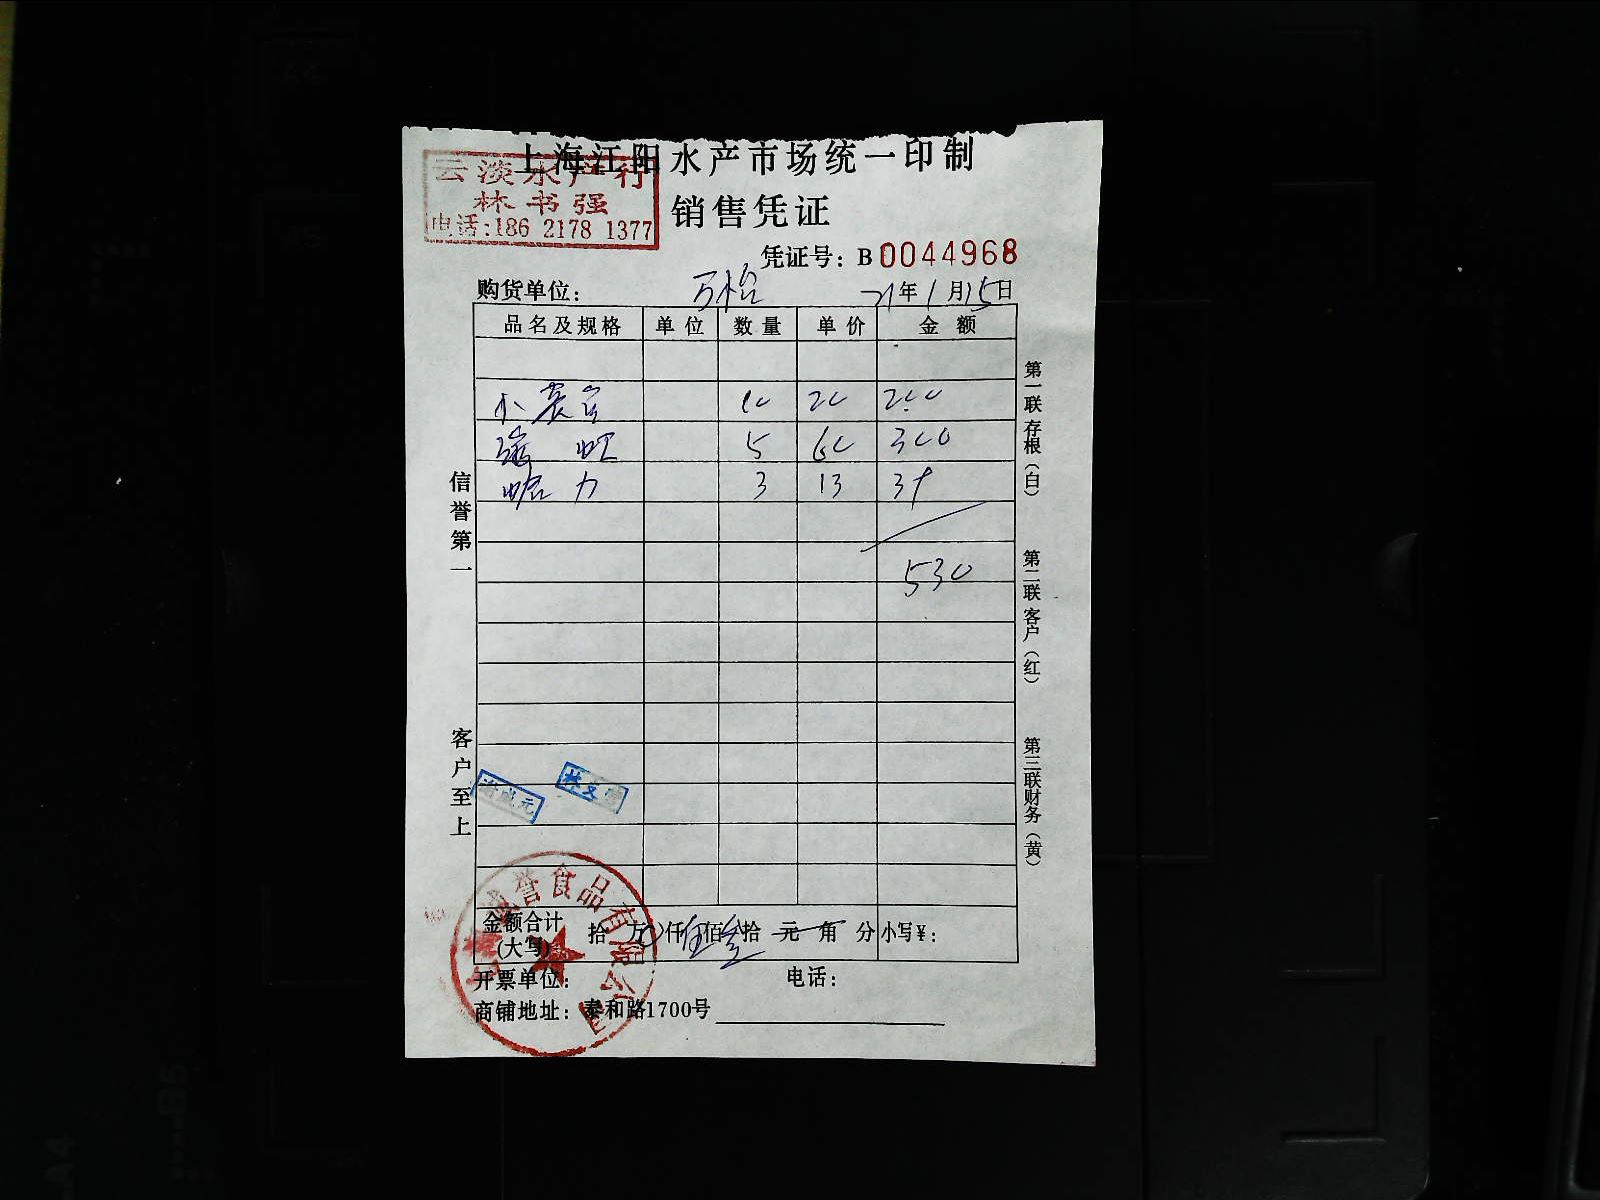 上海江阳水产市场统一印制
云淡水产行
林书强
电话:186 2178 1377
销售凭证
凭证号: B 0044968
购货单位: 万怡 21年1月15日
品名及规格 单位 数量 单价 金额
小黄 10 20 200
5 60 300
蛤力 3 13 39
530
信誉第一
客户至上
第一联存根(白)
第二联客户(红)
第三联财务(黄)
誉食品有限公司
金额合计(大写) 拾 万 仟伍佰叁拾 元 角 分 小写¥:
开票单位: 电话:
商铺地址: 泰和路1700号